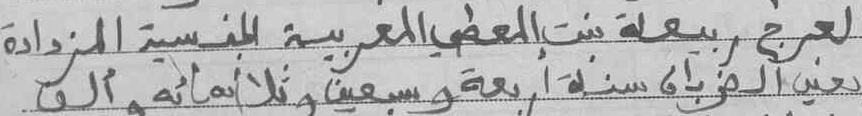 لعرج ربيعة بنت المعطي المغربية الجنسية المزدادة
بعين الخربان سنة أربعة وسبعين وثلاثمائة وألف